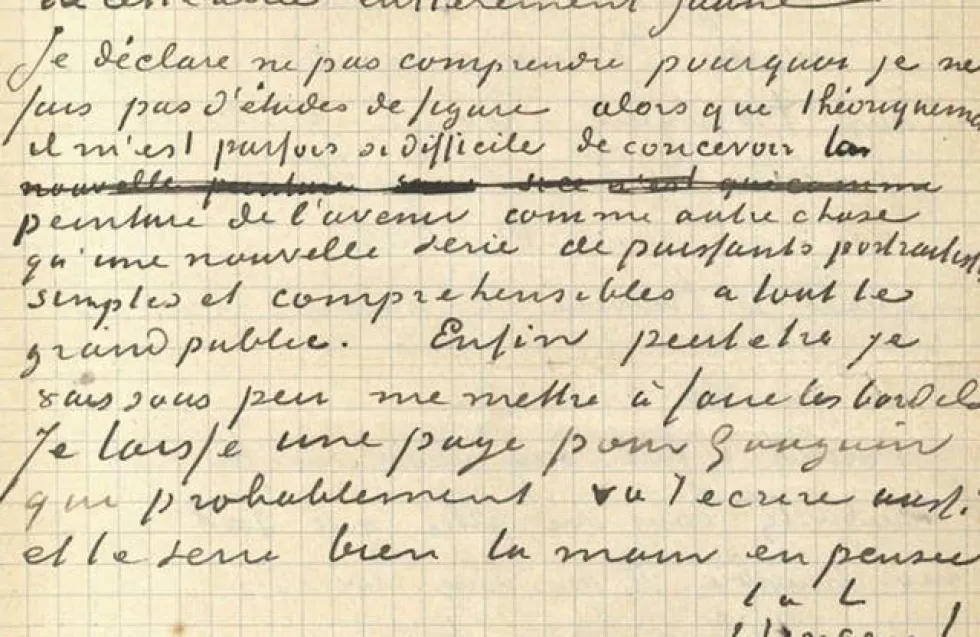 entièrement jaune
Je déclare ne pas comprendre pourquoi je ne
fais pas d'études de figure alors que théoriqueme
il m'est parfois si difficile de concevoir la
nouvelle peinture si ce n'est que comme
peinture de l'avenir comme autre chose
qu'une nouvelle serie de puissants portraitist
simples et comprehensibles a tout le
grand public. Enfin peutetre je
vais sous peu me mettre à faire les bordels
Je laisse une page pour Gauguin
qui probablement va t'ecrire aussi.
et te serre bien la main en pensée
t à t